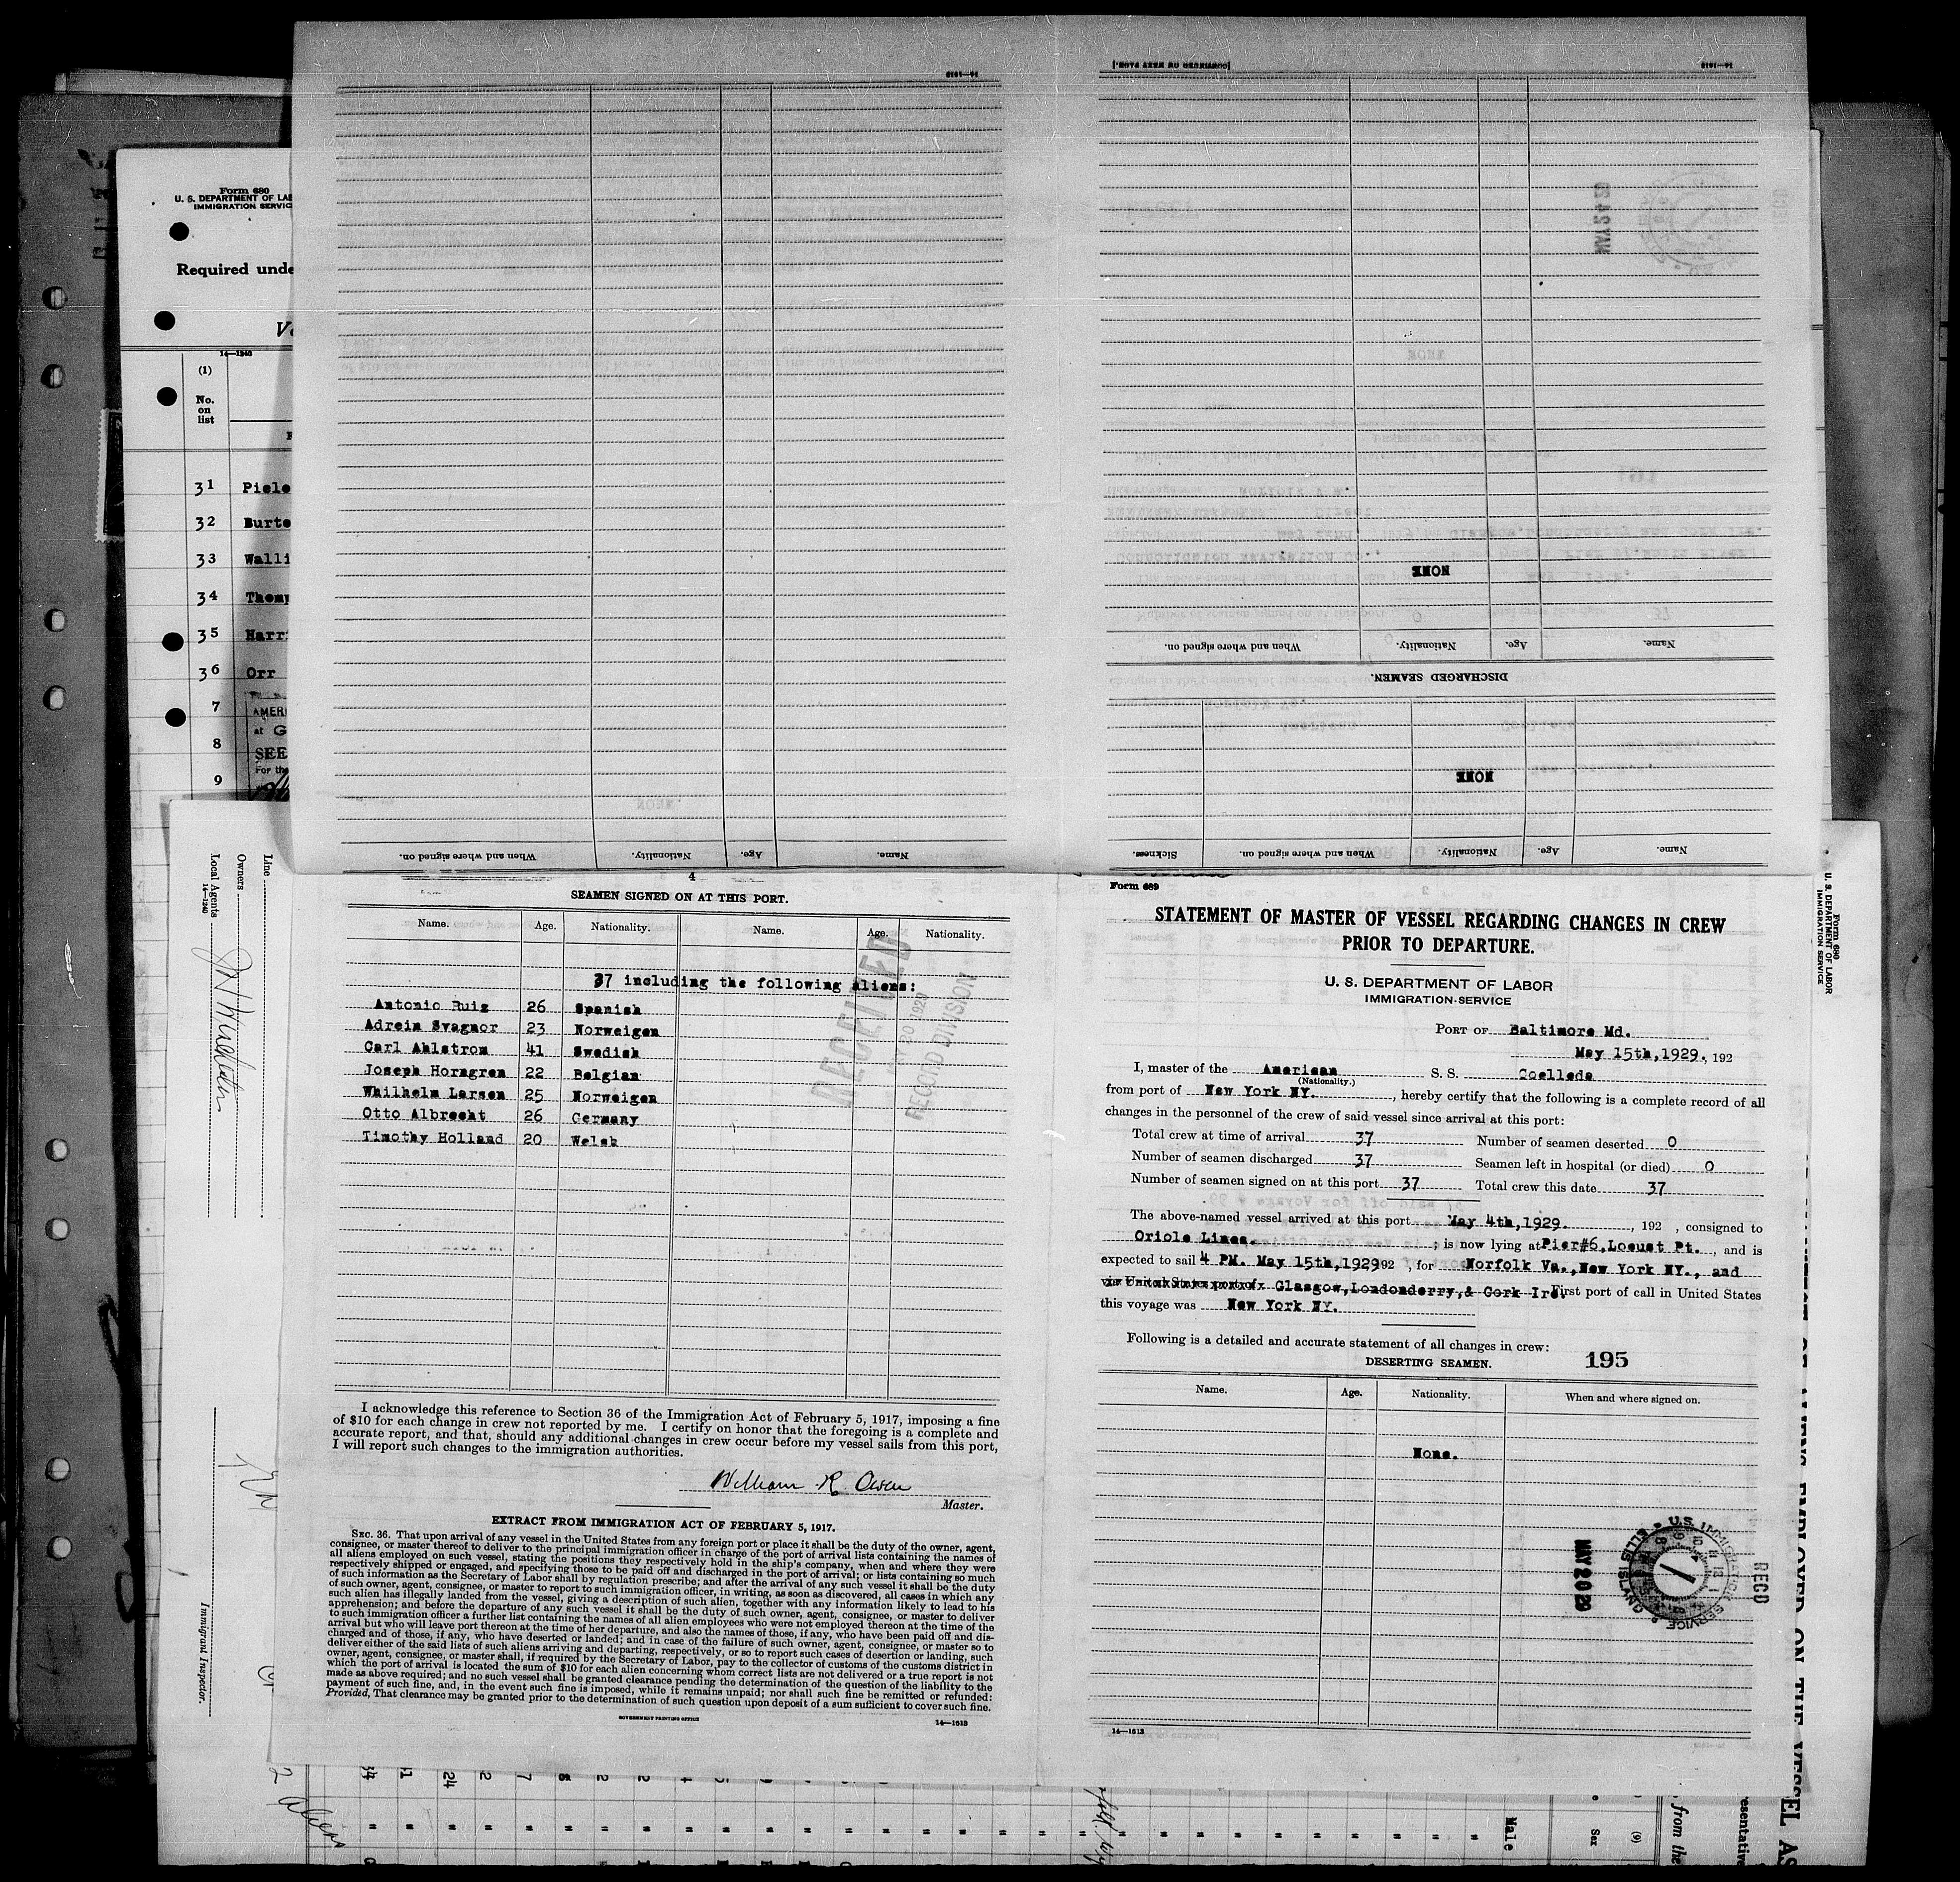 Form 680
U. S. DEPARTMENT OF LAB
IMMIGRATION SERVIC
Required unde
14—1240
(1)
No.
on
list
31 Piele
32 Burte
33 Walli
34 Thomp
35 Harri
36 Orr
7
8
9
AMERI
at G
SEE
For the
[CONTINUED ON NEXT PAGE.]
14—1613
14—1613
NONE
Name. Age. Nationality. When and where signed on.
DISCHARGED SEAMEN.
NONE
Name. Age. Nationality. When and where signed on. Sickness.
Name. Age. Nationality. When and where signed on.
MAY 24 29
4
SEAMEN SIGNED ON AT THIS PORT.
Name. Age. Nationality. Name. Age. Nationality.
37 including the following aliens:
Antonio Ruig 26 Spanish
Adrein Svagnor 23 Norweigen
Carl Ahlstrom 41 Swedish
Joseph Horngren 22 Belgian
Whilhelm Larsen 25 Norweigen
Otto Albrecht 26 Germany
Timothy Holland 20 Welsh
RECEIVED
MAY 20 1929
RECORD DIVISION
I acknowledge this reference to Section 36 of the Immigration Act of February 5, 1917, imposing a fine
of $10 for each change in crew not reported by me. I certify on honor that the foregoing is a complete and
accurate report, and that, should any additional changes in crew occur before my vessel sails from this port,
I will report such changes to the immigration authorities.
William R. Olsen
Master.
EXTRACT FROM IMMIGRATION ACT OF FEBRUARY 5, 1917.
SEC. 36. That upon arrival of any vessel in the United States from any foreign port or place it shall be the duty of the owner, agent,
consignee, or master thereof to deliver to the principal immigration officer in charge of the port of arrival lists containing the names of
all aliens employed on such vessel, stating the positions they respectively hold in the ship's company, when and where they were
respectively shipped or engaged, and specifying those to be paid off and discharged in the port of arrival; or lists containing so much
of such information as the Secretary of Labor shall by regulation prescribe; and after the arrival of any such vessel it shall be the duty
of such owner, agent, consignee, or master to report to such immigration officer, in writing, as soon as discovered, all cases in which any
such alien has illegally landed from the vessel, giving a description of such alien, together with any information likely to lead to his
apprehension; and before the departure of any such vessel it shall be the duty of such owner, agent, consignee, or master to deliver
to such immigration officer a further list containing the names of all alien employees who were not employed thereon at the time of the
arrival but who will leave port thereon at the time of her departure, and also the names of those, if any, who have been paid off and dis-
charged and of those, if any, who have deserted or landed; and in case of the failure of such owner, agent, consignee, or master so to
deliver either of the said lists of such aliens arriving and departing, respectively, or so to report such cases of desertion or landing, such
owner, agent, consignee, or master shall, if required by the Secretary of Labor, pay to the collector of customs of the customs district in
which the port of arrival is located the sum of $10 for each alien concerning whom correct lists are not delivered or a true report is not
made as above required; and no such vessel shall be granted clearance pending the determination of the question of the liability to the
payment of such fine, and, in the event such fine is imposed, while it remains unpaid; nor shall such fine be remitted or refunded:
Provided, That clearance may be granted prior to the determination of such question upon deposit of a sum sufficient to cover such fine.
GOVERNMENT PRINTING OFFICE
14—1613
Form 689
STATEMENT OF MASTER OF VESSEL REGARDING CHANGES IN CREW
PRIOR TO DEPARTURE.
U. S. DEPARTMENT OF LABOR
IMMIGRATION SERVICE
PORT OF Baltimore Md.
May 15th,1929., 192
I, master of the American S. S. Coelleda
(Nationality.)
from port of New York NY., hereby certify that the following is a complete record of all
changes in the personnel of the crew of said vessel since arrival at this port:
Total crew at time of arrival 37 Number of seamen deserted 0
Number of seamen discharged 37 Seamen left in hospital (or died) 0
Number of seamen signed on at this port 37 Total crew this date 37
The above-named vessel arrived at this port May 4th,1929., 192 , consigned to
Oriole Lines. ; is now lying at Pier#6,Locust Pt. , and is
expected to sail 4 PM. May 15th,192992 , for Norfolk Va.,New York NY., and
via United States port of Glasgow,Londonderry,& Cork Ire. First port of call in United States
this voyage was New York NY.
Following is a detailed and accurate statement of all changes in crew:
DESERTING SEAMEN. 195
Name. Age. Nationality. When and where signed on.
None.
U.S. IMMIGRATION SERVICE ELLIS ISLAND
MAY 20 29
RECD
14—1613
Line
Owners
Local Agents
14—1240
Immigrant Inspector.
Form 680
U. S. DEPARTMENT OF LABOR
IMMIGRATION SERVICE
EMPLOYED ON THE VESSEL AS
esentative
, from the
(9)
Sex
Male
34 1 24 2 7
2 aliens